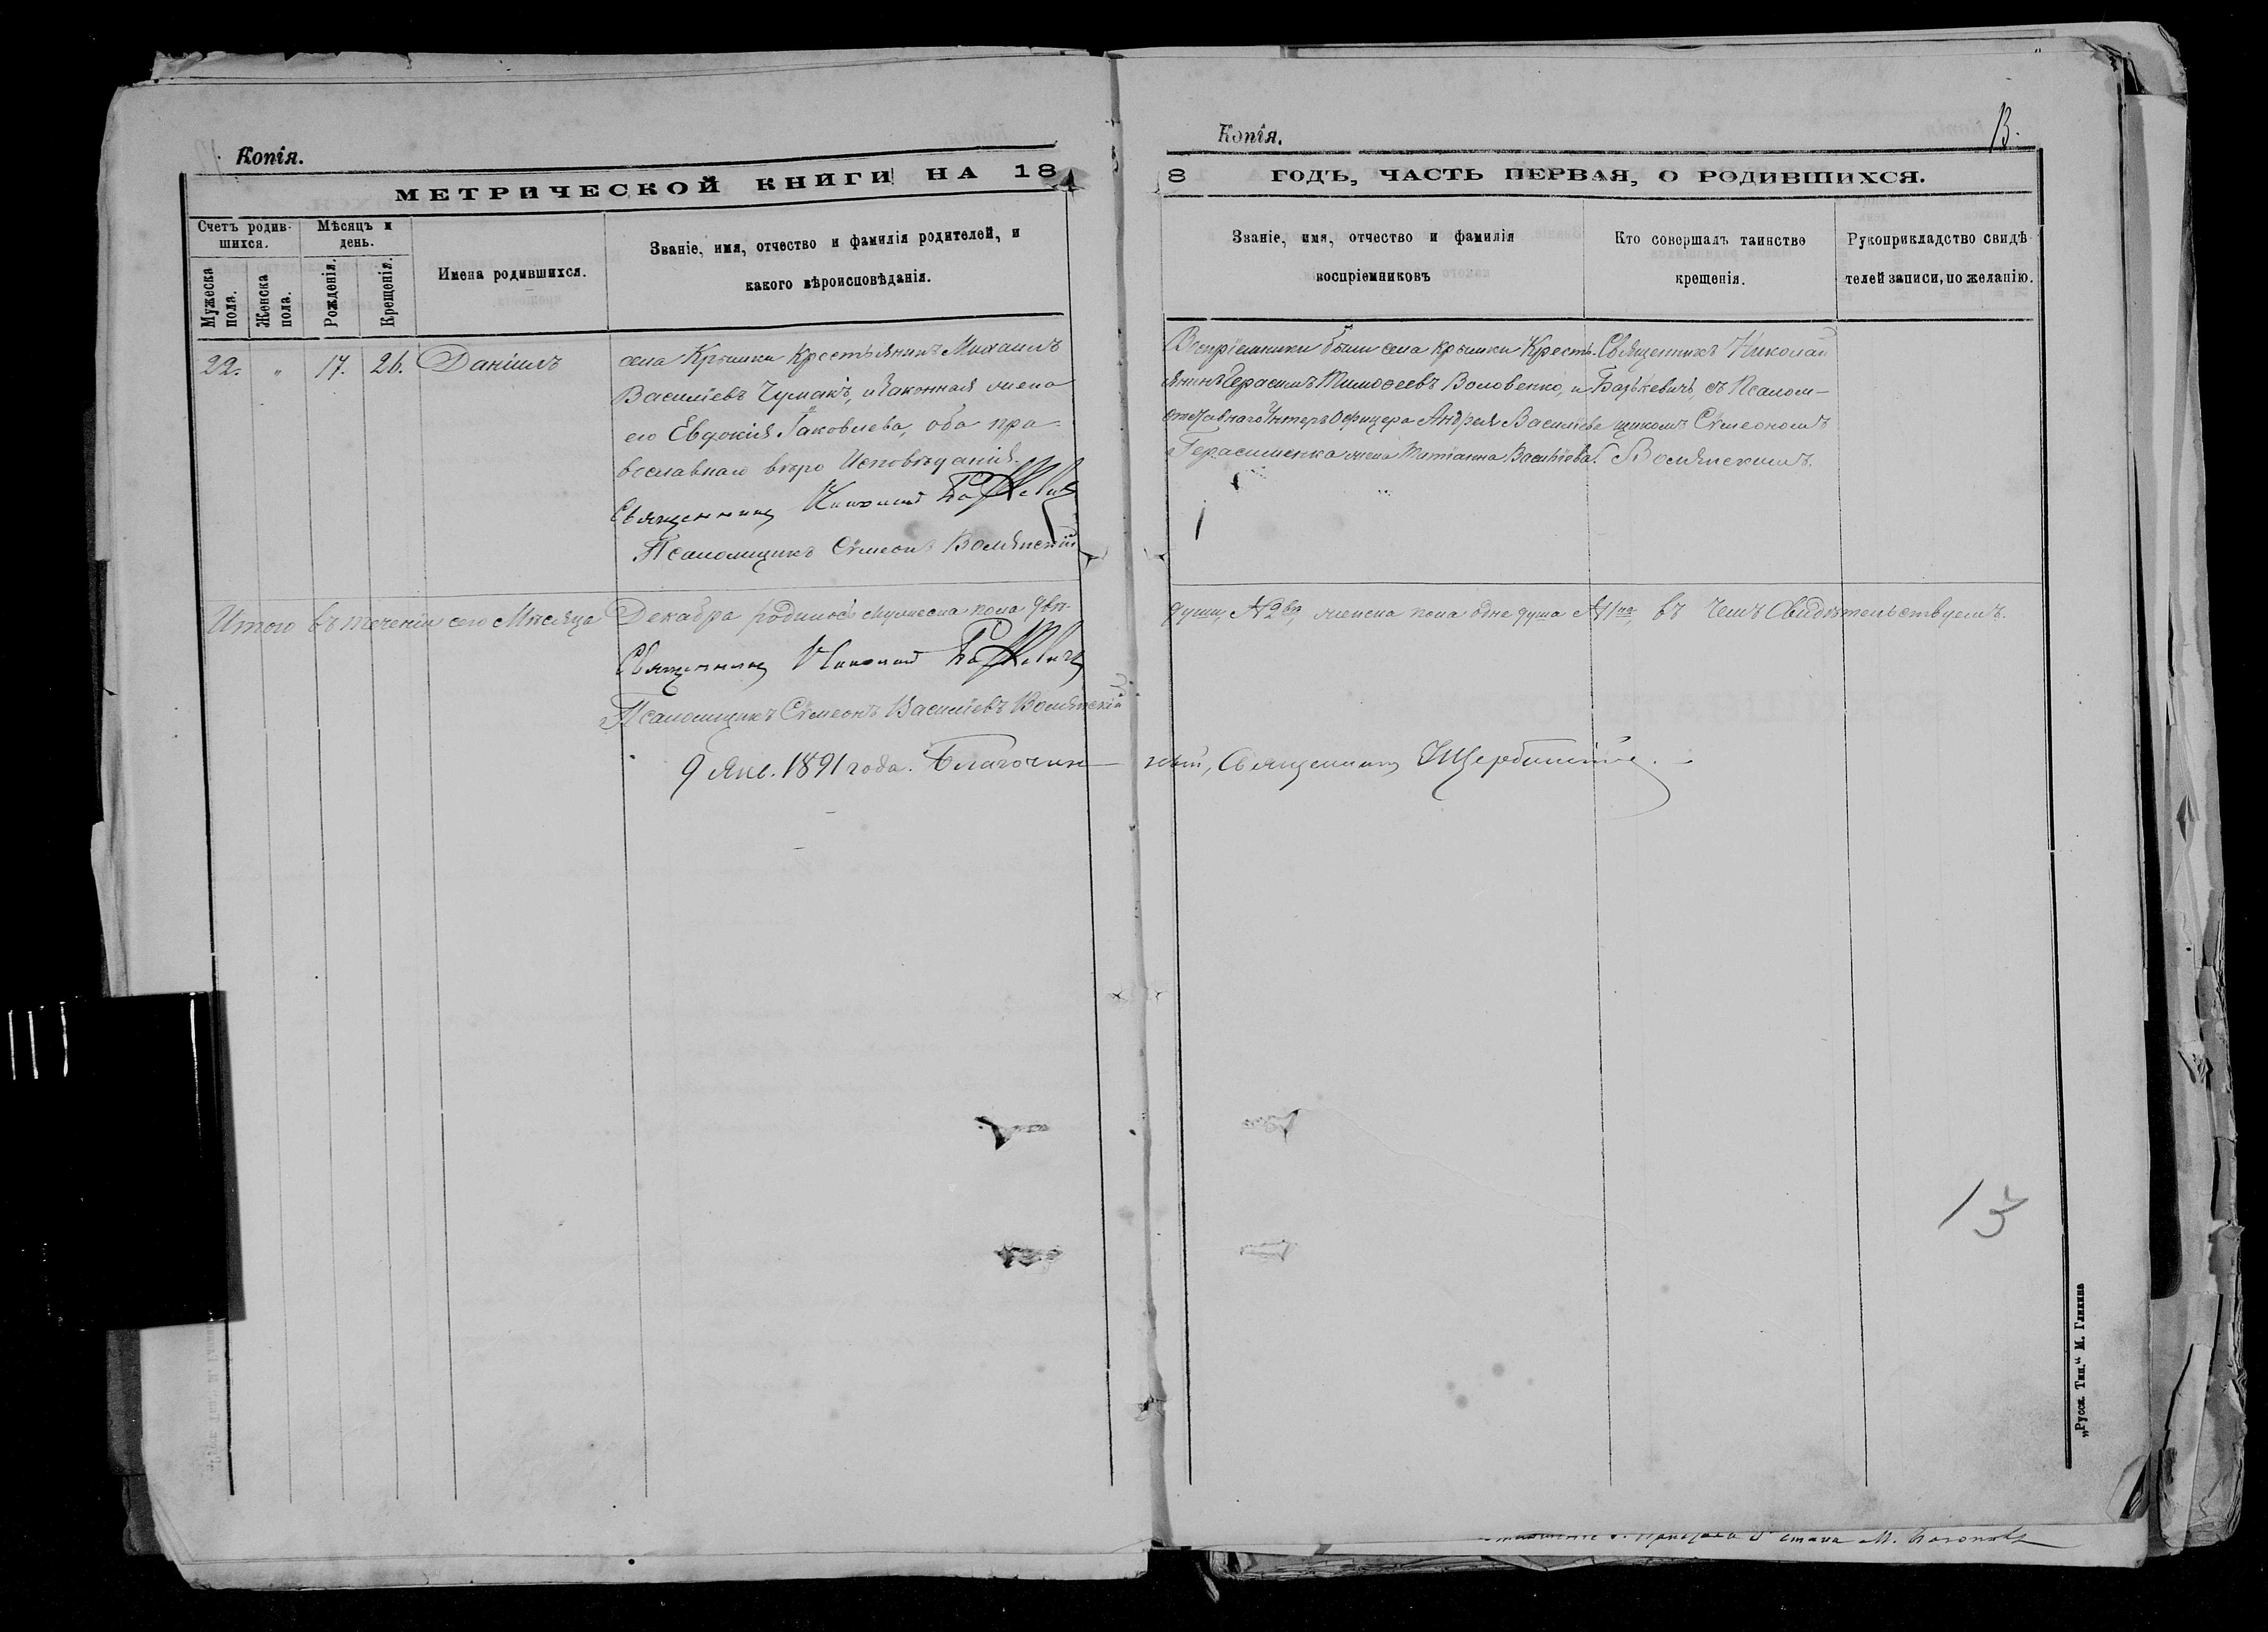 Копія.
МЕТРИЧЕСКОЙ КНИГИ НА 18
Счетъ родив-
шихся.
Мѣсяцъ и
день.
Мужеска
пола.
Женска
пола.
Рожденія.
Крещенія.
Имена родившихся.
Званіе, имя, отчество и фамилія родителей, и
какого вѣроисповѣданія.
22. " 17. 26. Даніилъ
села Крымки Крестьянинъ Михаилъ
Василіевъ Чумакъ, и законная жена
его Евдокія Іаковлева, оба пра-
вославнаго вѣро Исповѣданія.
Священникъ Николай Базькевичъ
Псаломщикъ Сѵмеонъ Волянскій
Итого въ теченіи сего Мѣсяца Декабря родилось мужеска пола двѣ
Священникъ Николай Базькевичъ
Псаломщикъ Сѵмеонъ Василіевъ Волянскій
9 Янв. 1891 года. Благочин-
Копія.
13.
8 ГОДЪ, ЧАСТЬ ПЕРВАЯ, О РОДИВШИХСЯ.
Званіе, имя, отчество и фамилія
воспріемниковъ
Кто совершалъ таинство
крещенія.
Рукоприкладство свидѣ
телей записи, по желанію.
Воспріемники были села Крымки Кресть-
янинъ Герасимъ Тимоѳеевъ Воловенко, и
отставнаго Унтеръ Офицера Андрея Василіева
Герасименка жена Титіанна Василіева.
Священникъ Николай
Базькевичъ, съ Псалом-
щикомъ Сѵмеономъ
Волянскимъ.
души, № 2вѣ, женска пола одна душа № 1на, въ чемъ Свидѣтельствуемъ.
ный, Священникъ Щербинскій.
13
„Русск. Тип.“ М. Гликина
стана М.